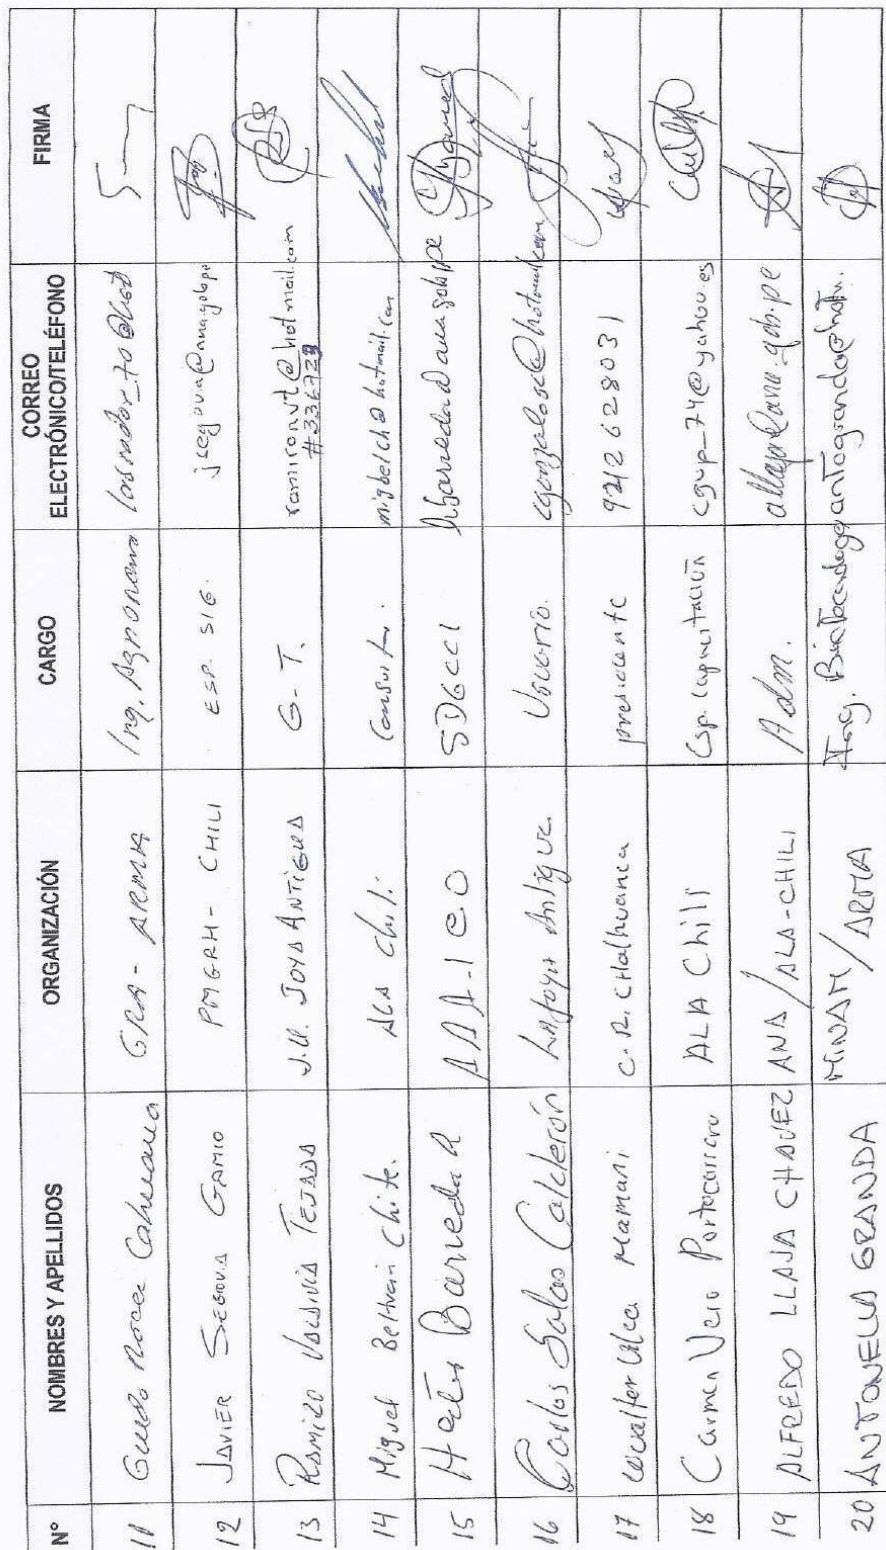 N° NOMBRES Y APELLIDOS ORGANIZACIÓN CARGO CORREO ELECTRÓNICO/TELÉFONO FIRMA
11 GRA - ARMA Ing. Agronomo
12 JAVIER SEGOVIA GAMIO PMGRH - CHILI ESP. SIG. jsegovia@ana.gob.pe
13 RAMIRO VALDIVIA TEJADA J.U. JOYA ANTIGUA G - T. ramironvt@hotmail.com
14 Miguel Beltran Chite. ALA Chili Consultor. migbelch@hotmail.com
15 Hector Barreda R AAA-I C.O SDGCCI hbarreda@ana.gob.pe
16 Carlos Salas Calderón La Joya Antigua Usuario. cgonzalosc@hotmail.com
17 Walter Vilca Mamani C.R. Chalhuanca presidente
18 Carmen Vera Portocarrero ALA Chili Esp. Capacitación cgvp_74@yahoo.es
19 ALFREDO LLAJA CHAVEZ ANA/ALA-CHILI Adm. allaja@ana.gob.pe
20 ANTONELLA GRANDA MINAM/ARMA Ing. antogranda@hotm.